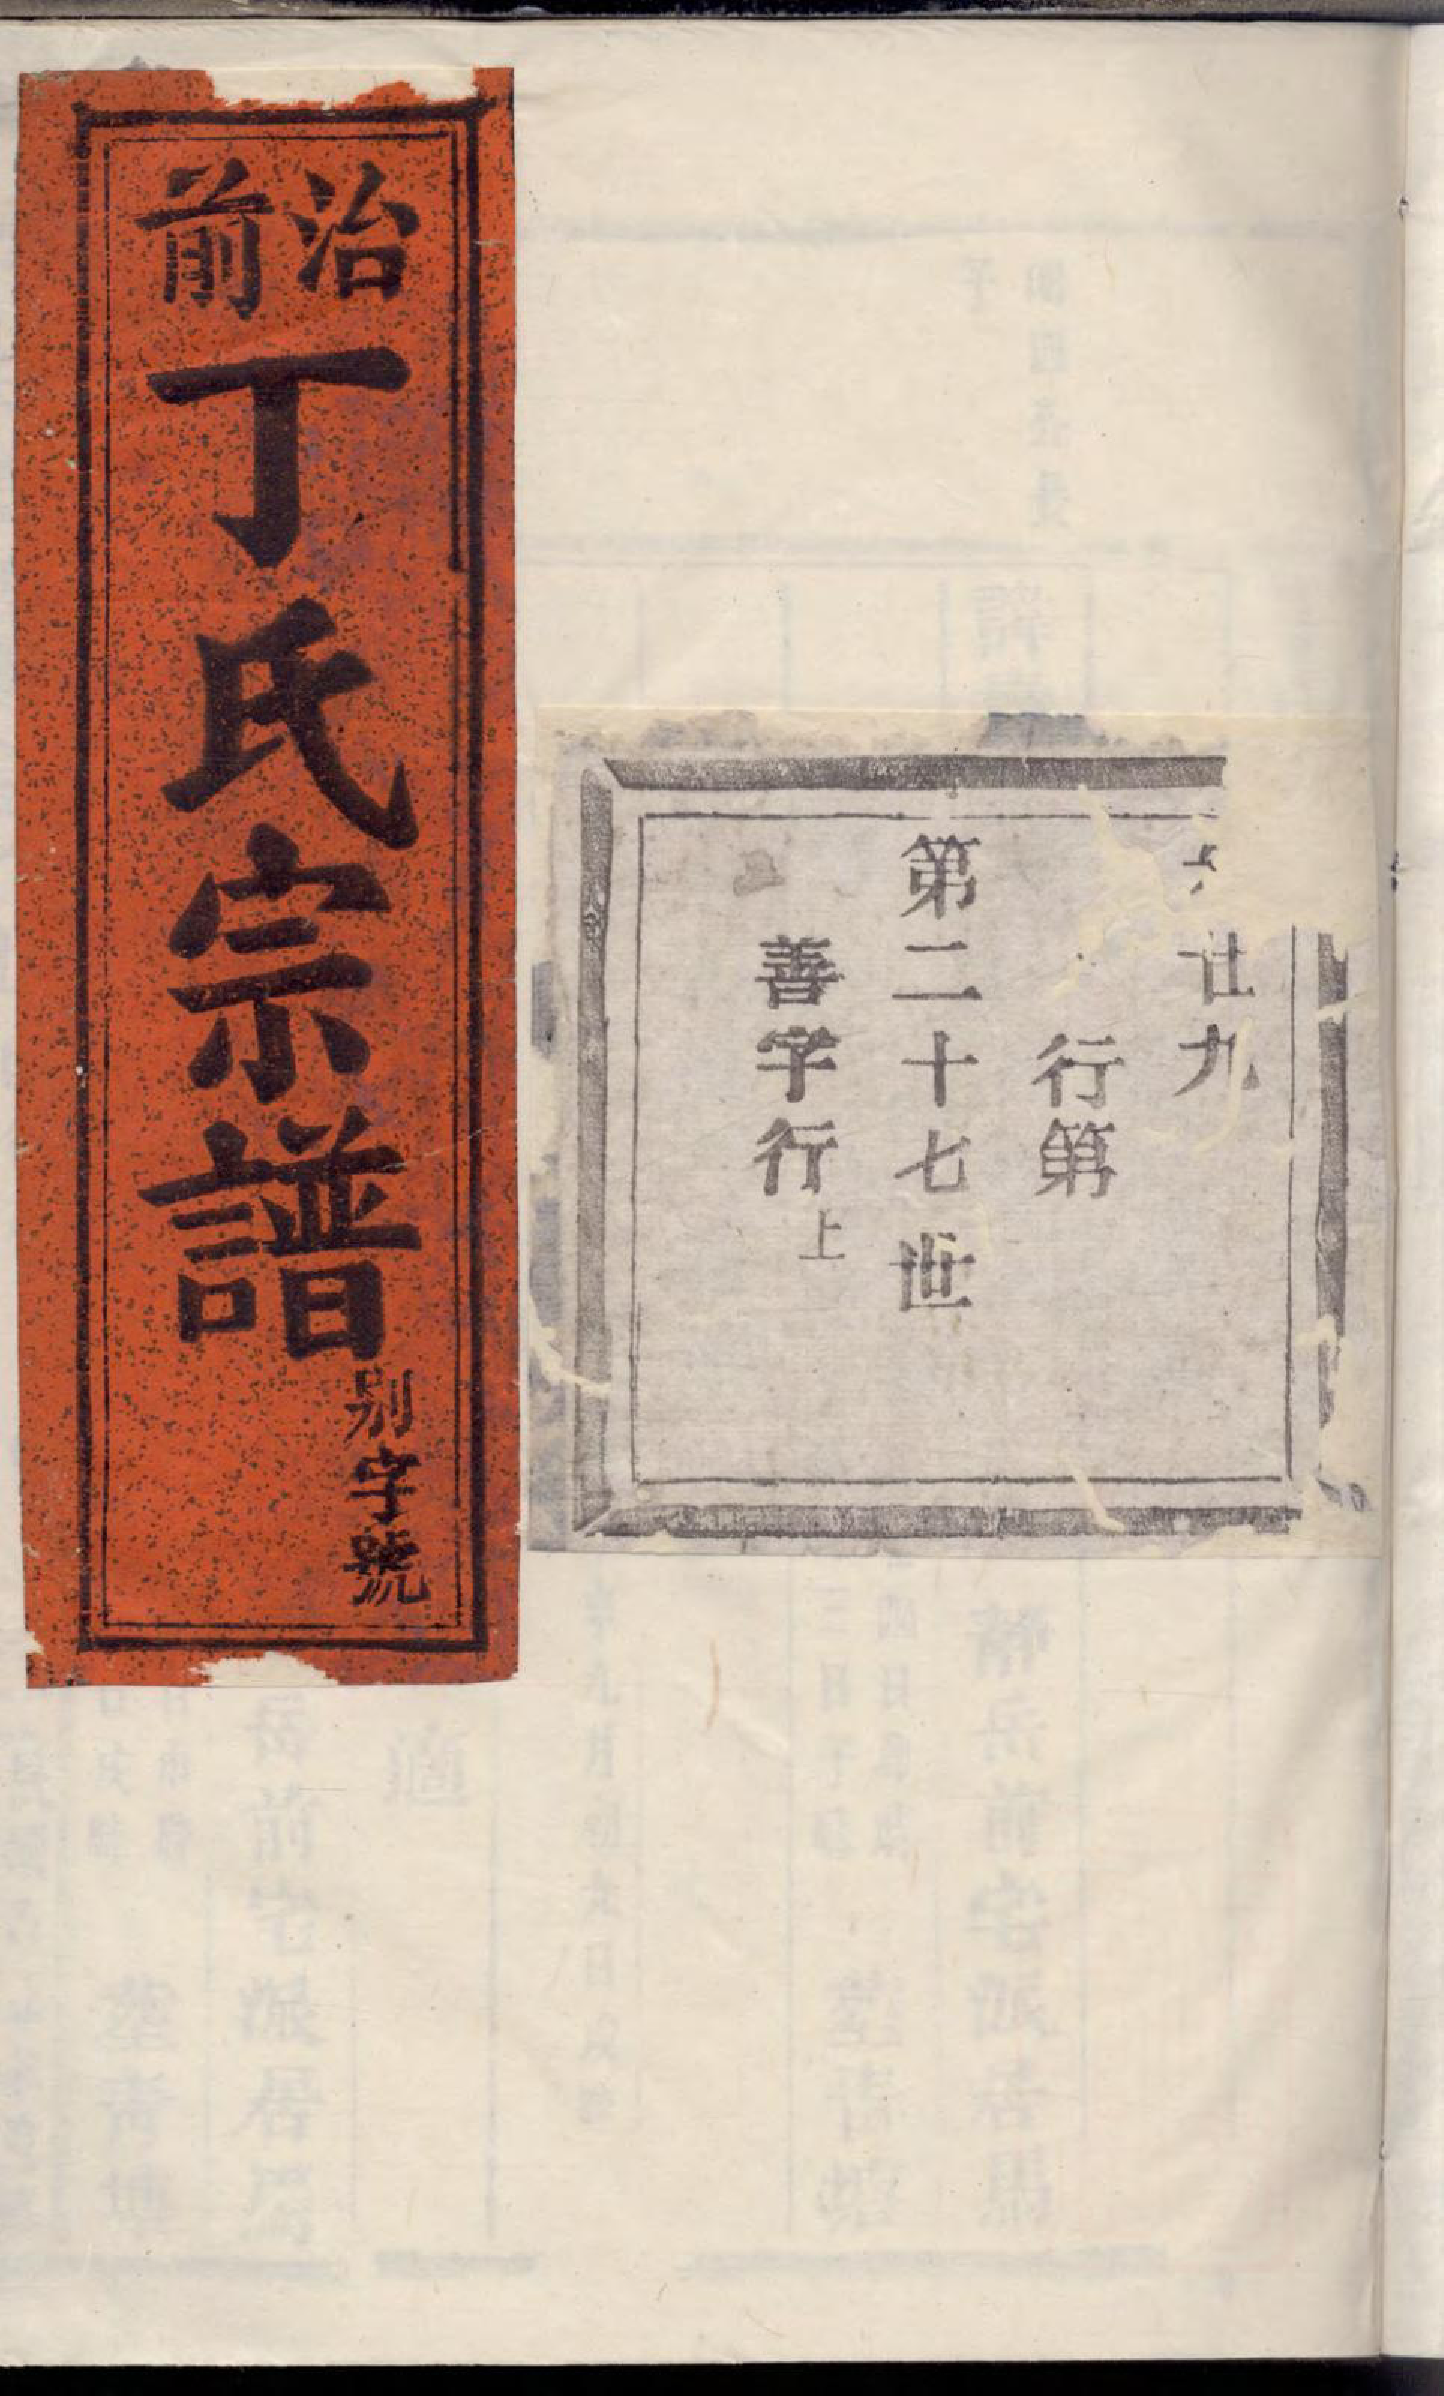 廿九
行第
第二十七世
善字行上
治前
丁氏宗譜
别字號